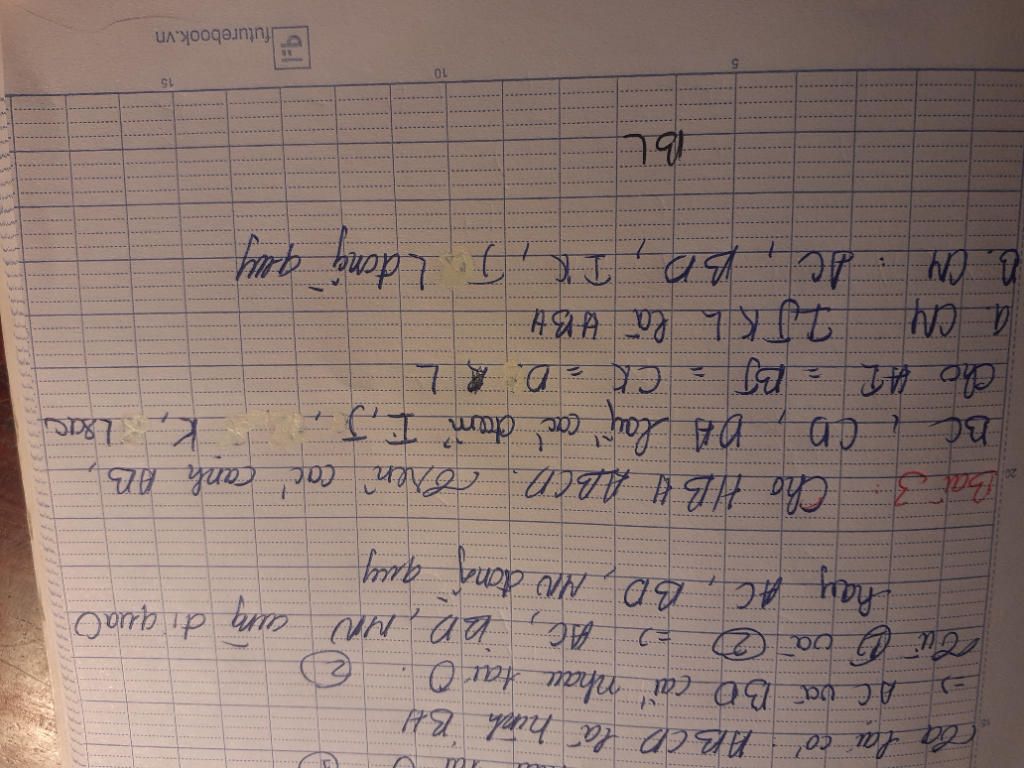 Ta lại có: ABCD là hình BH
=> AC và BD cắt nhau tại O. (2)
Từ (1) và (2) => AC, BD, MN cùng đi qua O
hay AC, BD, MN đồng quy
Bài 3: Cho HBH ABCD. Trên các cạnh AB,
BC, CD, DA lấy các điểm I, J, K, L sao
cho AI = BJ = CK = DL
a. CM IJKL là HBH
B. CM: AC, BD, IK, JL đồng quy
BL
5 10 15
futurebook.vn